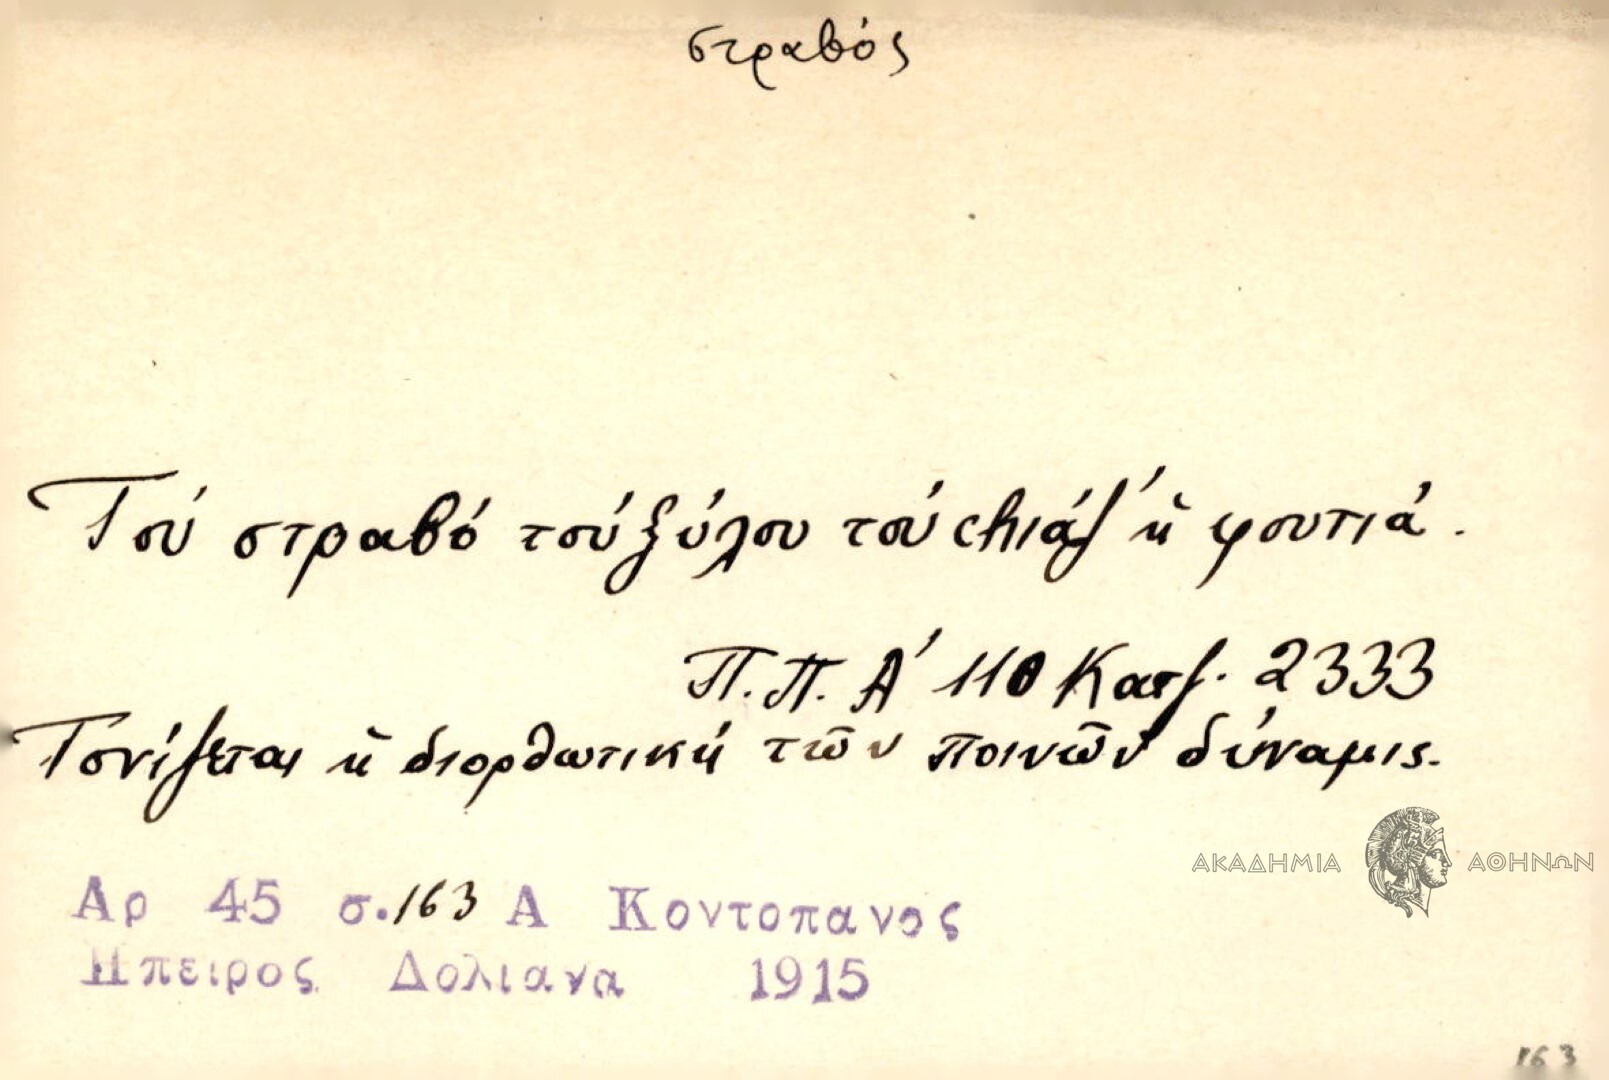 στραβός
Τού στραβό τού ξύλου τού σιάζ' ἡ φουτιά.
Π.Π. Α' 110 Κατζ. 2333
Τονίζεται ἡ διορθωτική τῶν ποινῶν δύναμις.
ΑΚΑΔΗΜΙΑ ΑΘΗΝΩΝ
Αρ 45 σ.163 Α Κοντοπανος
Ηπειρος Δολιανα 1915
163